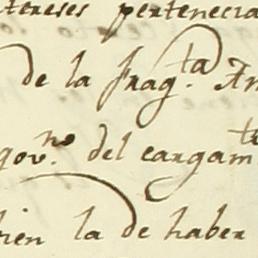 tereses pertenecia
de la frag.ta An
gov.no del cargamte
bien la de haber